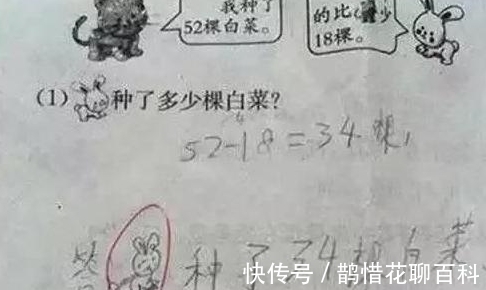 我种了
52棵白菜。
的比
少
18棵。
(1) 种了多少棵白菜?
52-18=34棵,
答 种了34棵白菜
快传号/鹊惜花聊百科